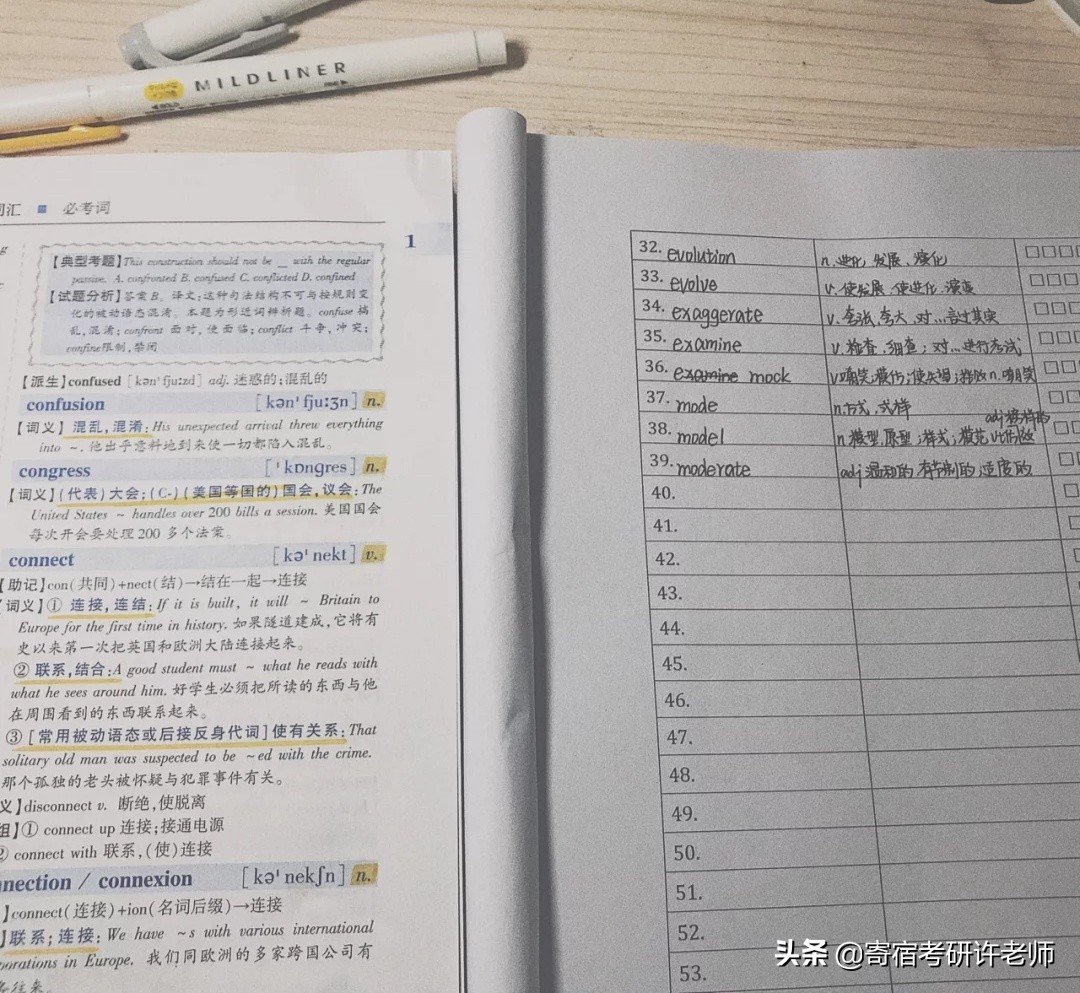 MILDLINER
词汇 ■ 必考词
1
【典型考题】This construction should not be __ with the regular
passive. A. confronted B. confused C. conflicted D. confined
【试题分析】答案B。译文:这种句法结构不可与按规则变
化的被动语态混淆。本题为形近词辨析题。confuse 搞
乱,混淆;confront 面对,使面临;conflict 斗争,冲突;
confine限制,禁闭
【派生】confused [kən'fjuːzd] adj. 迷惑的;混乱的
confusion [kən'fjuːʒn] n.
【词义】混乱,混淆:His unexpected arrival threw everything
into ~. 他出乎意料地到来使一切都陷入混乱。
congress ['kɒŋgres] n.
【词义】(代表)大会;(C-)(美国等国的)国会,议会:The
United States ~ handles over 200 bills a session. 美国国会
每次开会要处理200多个法案。
connect [kə'nekt] v.
【助记】con(共同)+nect(结)→结在一起→连接
【词义】① 连接,连结:If it is built, it will ~ Britain to
Europe for the first time in history. 如果隧道建成,它将有
史以来第一次把英国和欧洲大陆连接起来。
② 联系,结合:A good student must ~ what he reads with
what he sees around him. 好学生必须把所读的东西与他
在周围看到的东西联系起来。
③ [常用被动语态或后接反身代词]使有关系:That
solitary old man was suspected to be ~ed with the crime.
那个孤独的老头被怀疑与犯罪事件有关。
义】disconnect v. 断绝,使脱离
组】① connect up 连接;接通电源
② connect with 联系,(使)连接
nnection / connexion [kə'nekʃn] n.
】connect(连接)+ion(名词后缀)→连接
】联系;连接:We have ~s with various international
porations in Europe. 我们同欧洲的多家跨国公司有
务往来。
32. evolution n.进化 发展、演化
33. evolve v.使发展 使进化 演变
34. exaggerate v.夸张,夸大,对…言过其实
35. examine v.检查,细查;对…进行考试
36. examine mock v嘲笑;模仿;使失望; n.嘲笑
37. mode n.方式,式样
38. model n.模型,原型;样式;模范 adj模样的
39. moderate adj温和的 有节制的 适度的
40.
41.
42.
43.
44.
45.
46.
47.
48.
49.
50.
51.
52.
53.
头条 @寄宿考研许老师